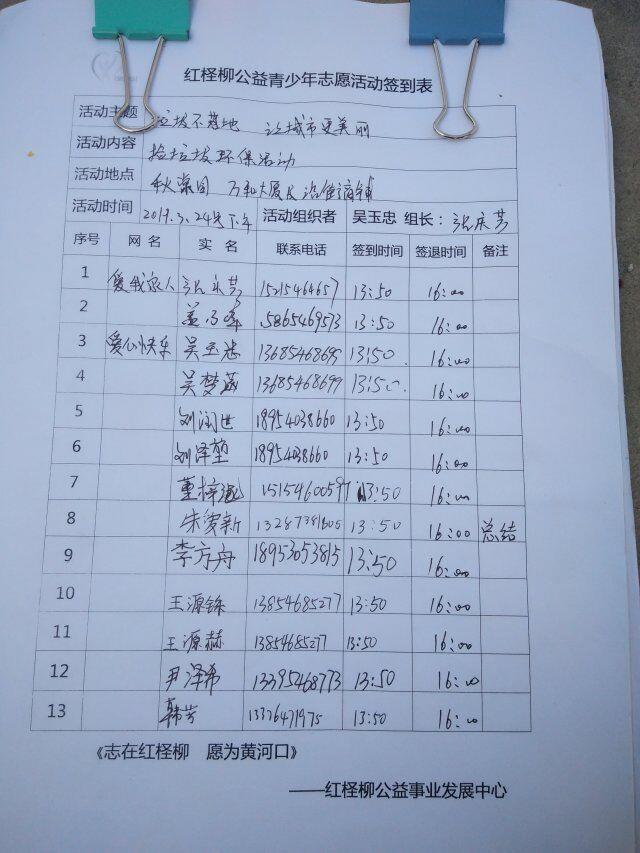 红柽柳公益青少年志愿活动签到表
活动主题 垃圾不落地 让城市更美丽
活动内容 捡垃圾环保活动
活动地点 万和大厦及沿街商铺
活动时间 2019.3.24号下午 活动组织者 吴玉忠 组长：张庆芸
序号 网 名 实 名 联系电话 签到时间 签退时间 备注
1 爱我家人 张庆芸 13:50 16:00
2 5865469573 13:50 16:00
3 爱心快车 吴玉忠 13685468695 13:50 16:00
4 吴梦 13685468699 13:50 16:00
5 刘润世 18954038660 13:50 16:00
6 刘泽堃 18954038660 13:50 16:00
7 曹梓 15154600597 13:50 16:00
8 朱 新 13:50 16:00 总结
9 李方舟 18953053815 13:50 16:00
10 王源铄 13854685277 13:50 16:00
11 王源赫 13854685277 13:50 16:00
12 尹泽希 13395468773 13:50 16:00
13 韩芳 13326471975 13:50 16:00
《志在红柽柳 愿为黄河口》
——红柽柳公益事业发展中心